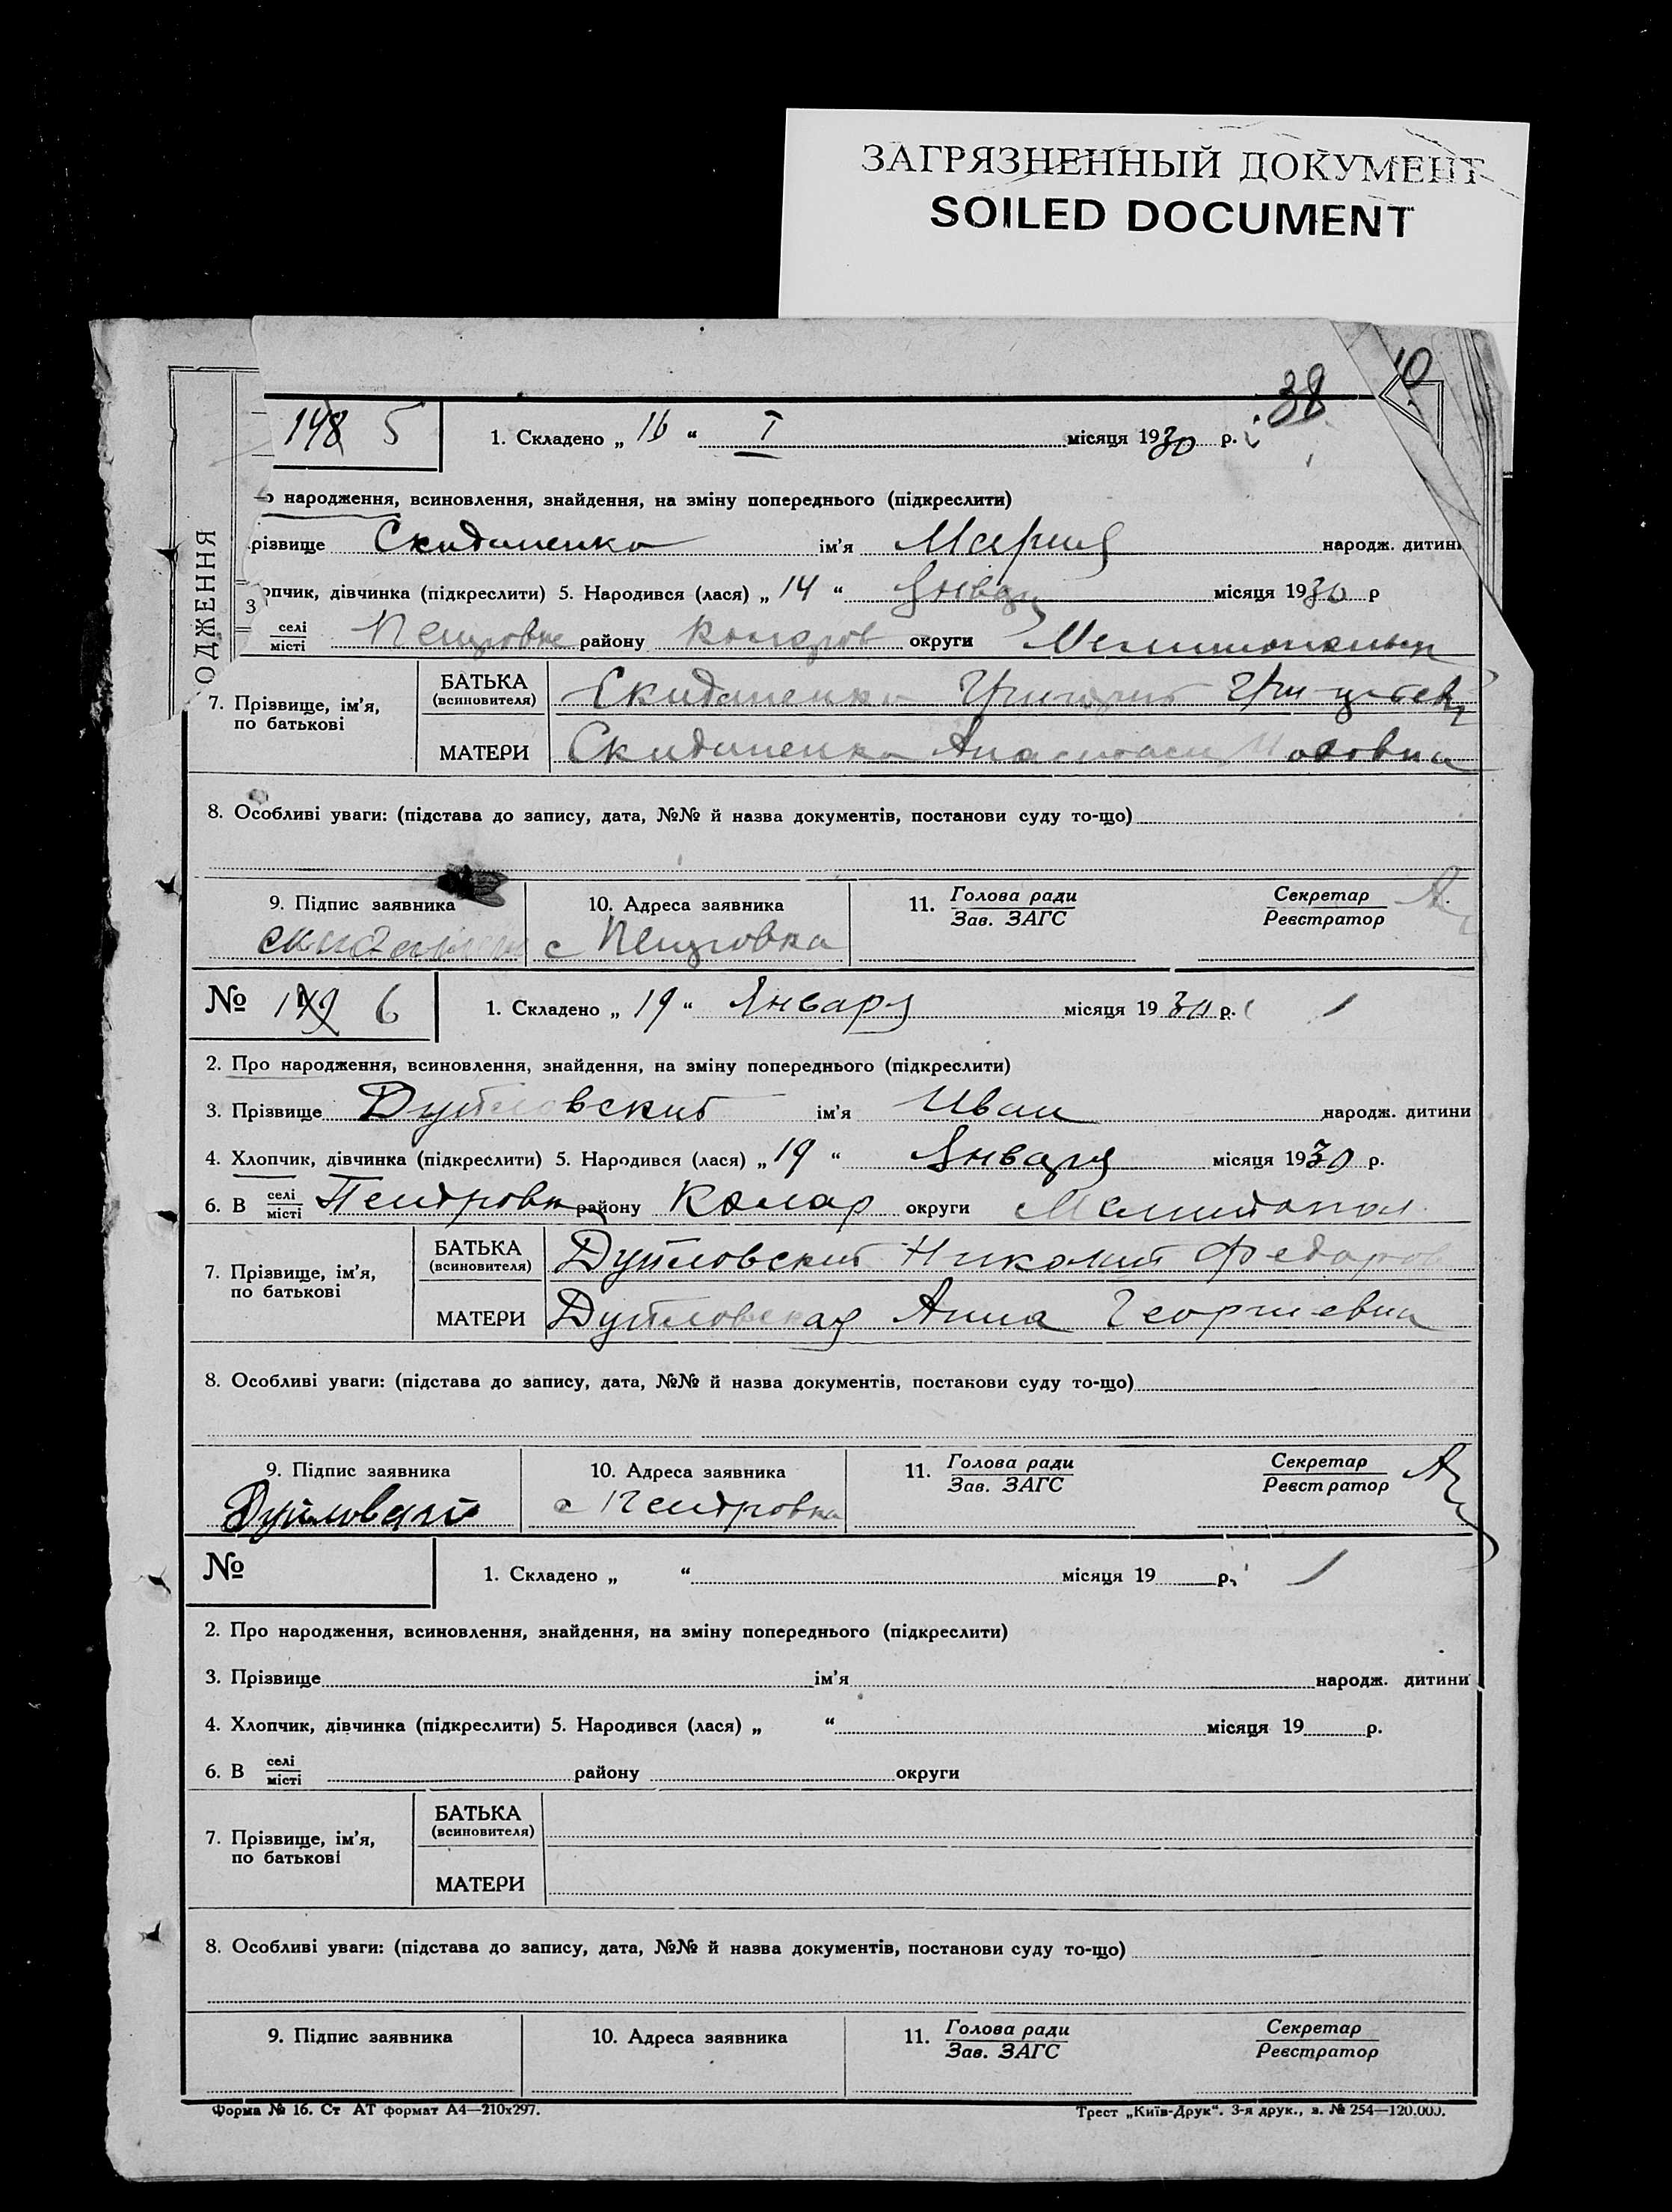 ЗАГРЯЗНЕННЫЙ ДОКУМЕНТ
SOILED DOCUMENT
38 10
148 5 1. Складено „ 16 “ I місяця 1930 р.
о народження, всиновлення, знайдення, на зміну попереднього (підкреслити)
різвище Скидапенко ім'я Мария народж. дитини
опчик, дівчинка (підкреслити) 5. Народився (лася) „ 14 “ Января місяця 1930 р
ОДЖЕННЯ
З
селі
місті
району округи
7. Прізвище, ім'я,
по батькові
БАТЬКА
(всиновителя)
Скидапенко Григорий
МАТЕРИ Скидапенко
8. Особливі уваги: (підстава до запису, дата, №№ й назва документів, постанови суду то-що)
9. Підпис заявника 10. Адреса заявника 11. Голова ради Секретар
Зав. ЗАГС Реєстратор
с
№ 149 6 1. Складено „ 19 “ Января місяця 1930 р.
2. Про народження, всиновлення, знайдення, на зміну попереднього (підкреслити)
3. Прізвище ім'я Иван народж. дитини
4. Хлопчик, дівчинка (підкреслити) 5. Народився (лася) „ 19 “ Января місяця 1930 р.
6. В селі
місті
Петровка району Колар округи Мелитопол
7. Прізвище, ім'я,
по батькові
БАТЬКА
(всиновителя)
Николай Федоров
МАТЕРИ Анна Георгиевна
8. Особливі уваги: (підстава до запису, дата, №№ й назва документів, постанови суду то-що)
9. Підпис заявника 10. Адреса заявника 11. Голова ради Секретар
Зав. ЗАГС Реєстратор
с Петровка
№ 1. Складено „ “ місяця 19 р.
2. Про народження, всиновлення, знайдення, на зміну попереднього (підкреслити)
3. Прізвище ім'я народж. дитини
4. Хлопчик, дівчинка (підкреслити) 5. Народився (лася) „ “ місяця 19 р.
6. В селі
місті
району округи
7. Прізвище, ім'я,
по батькові
БАТЬКА
(всиновителя)
МАТЕРИ
8. Особливі уваги: (підстава до запису, дата, №№ й назва документів, постанови суду то-що)
9. Підпис заявника 10. Адреса заявника 11. Голова ради Секретар
Зав. ЗАГС Реєстратор
Форма № 16. Ст АТ формат А4—210х297. Трест „Київ-Друк“. 3-я друк., з. № 254—120.000.